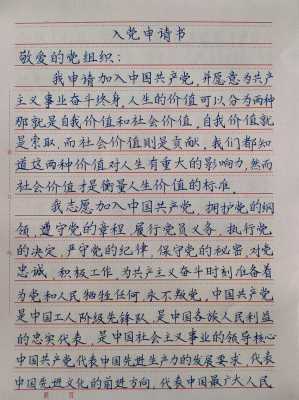 入党申请书
敬爱的党组织：
我申请加入中国共产党，并愿意为共产
主义事业奋斗终身，人生的价值可以分为两种
那就是自我价值和社会价值，自我价值就
是索取，而社会价值则是贡献，我们都知
道这两种价值对人生有重大的影响力，然而
社会价值才是衡量人生价值的标准。
我志愿加入中国共产党，拥护党的纲
领，遵守党的章程，履行党员义务，执行党
的决定，严守党的纪律，保守党的秘密，对党
忠诚，积极工作，为共产主义奋斗时刻准备着
为党和人民牺牲任何，永不叛党，中国共产党
是中国工人阶级先锋队，是中国各族人民利益
的忠实代表，是中国社会主义事业的领导核心
中国共产党代表中国先进生产力的发展要求，代表
中国先进文化的前进方向，代表中国最广大人民